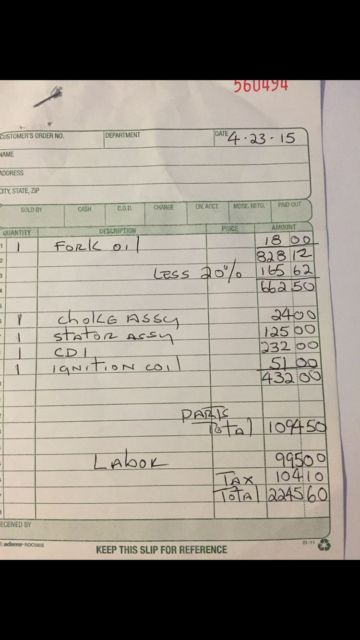 560494
CUSTOMER'S ORDER NO. DEPARTMENT DATE 4-23-15
NAME
ADDRESS
CITY, STATE, ZIP
SOLD BY CASH C.O.D. CHARGE ON ACCT. MDSE. RETD. PAID OUT
QUANTITY DESCRIPTION PRICE AMOUNT
1 1 FORK OIL 18 00
828 12
LESS 20% 165 62
662 50
1 CHOKE ASSY 24 00
1 STATOR ASSY 125 00
1 CDI 232 00
1 IGNITION COIL 51 00
432 00
PARTS
TOTAL 1094 50
LABOR 995 00
TAX 104 10
TOTAL 2245 60
RECEIVED BY
adams
KEEP THIS SLIP FOR REFERENCE